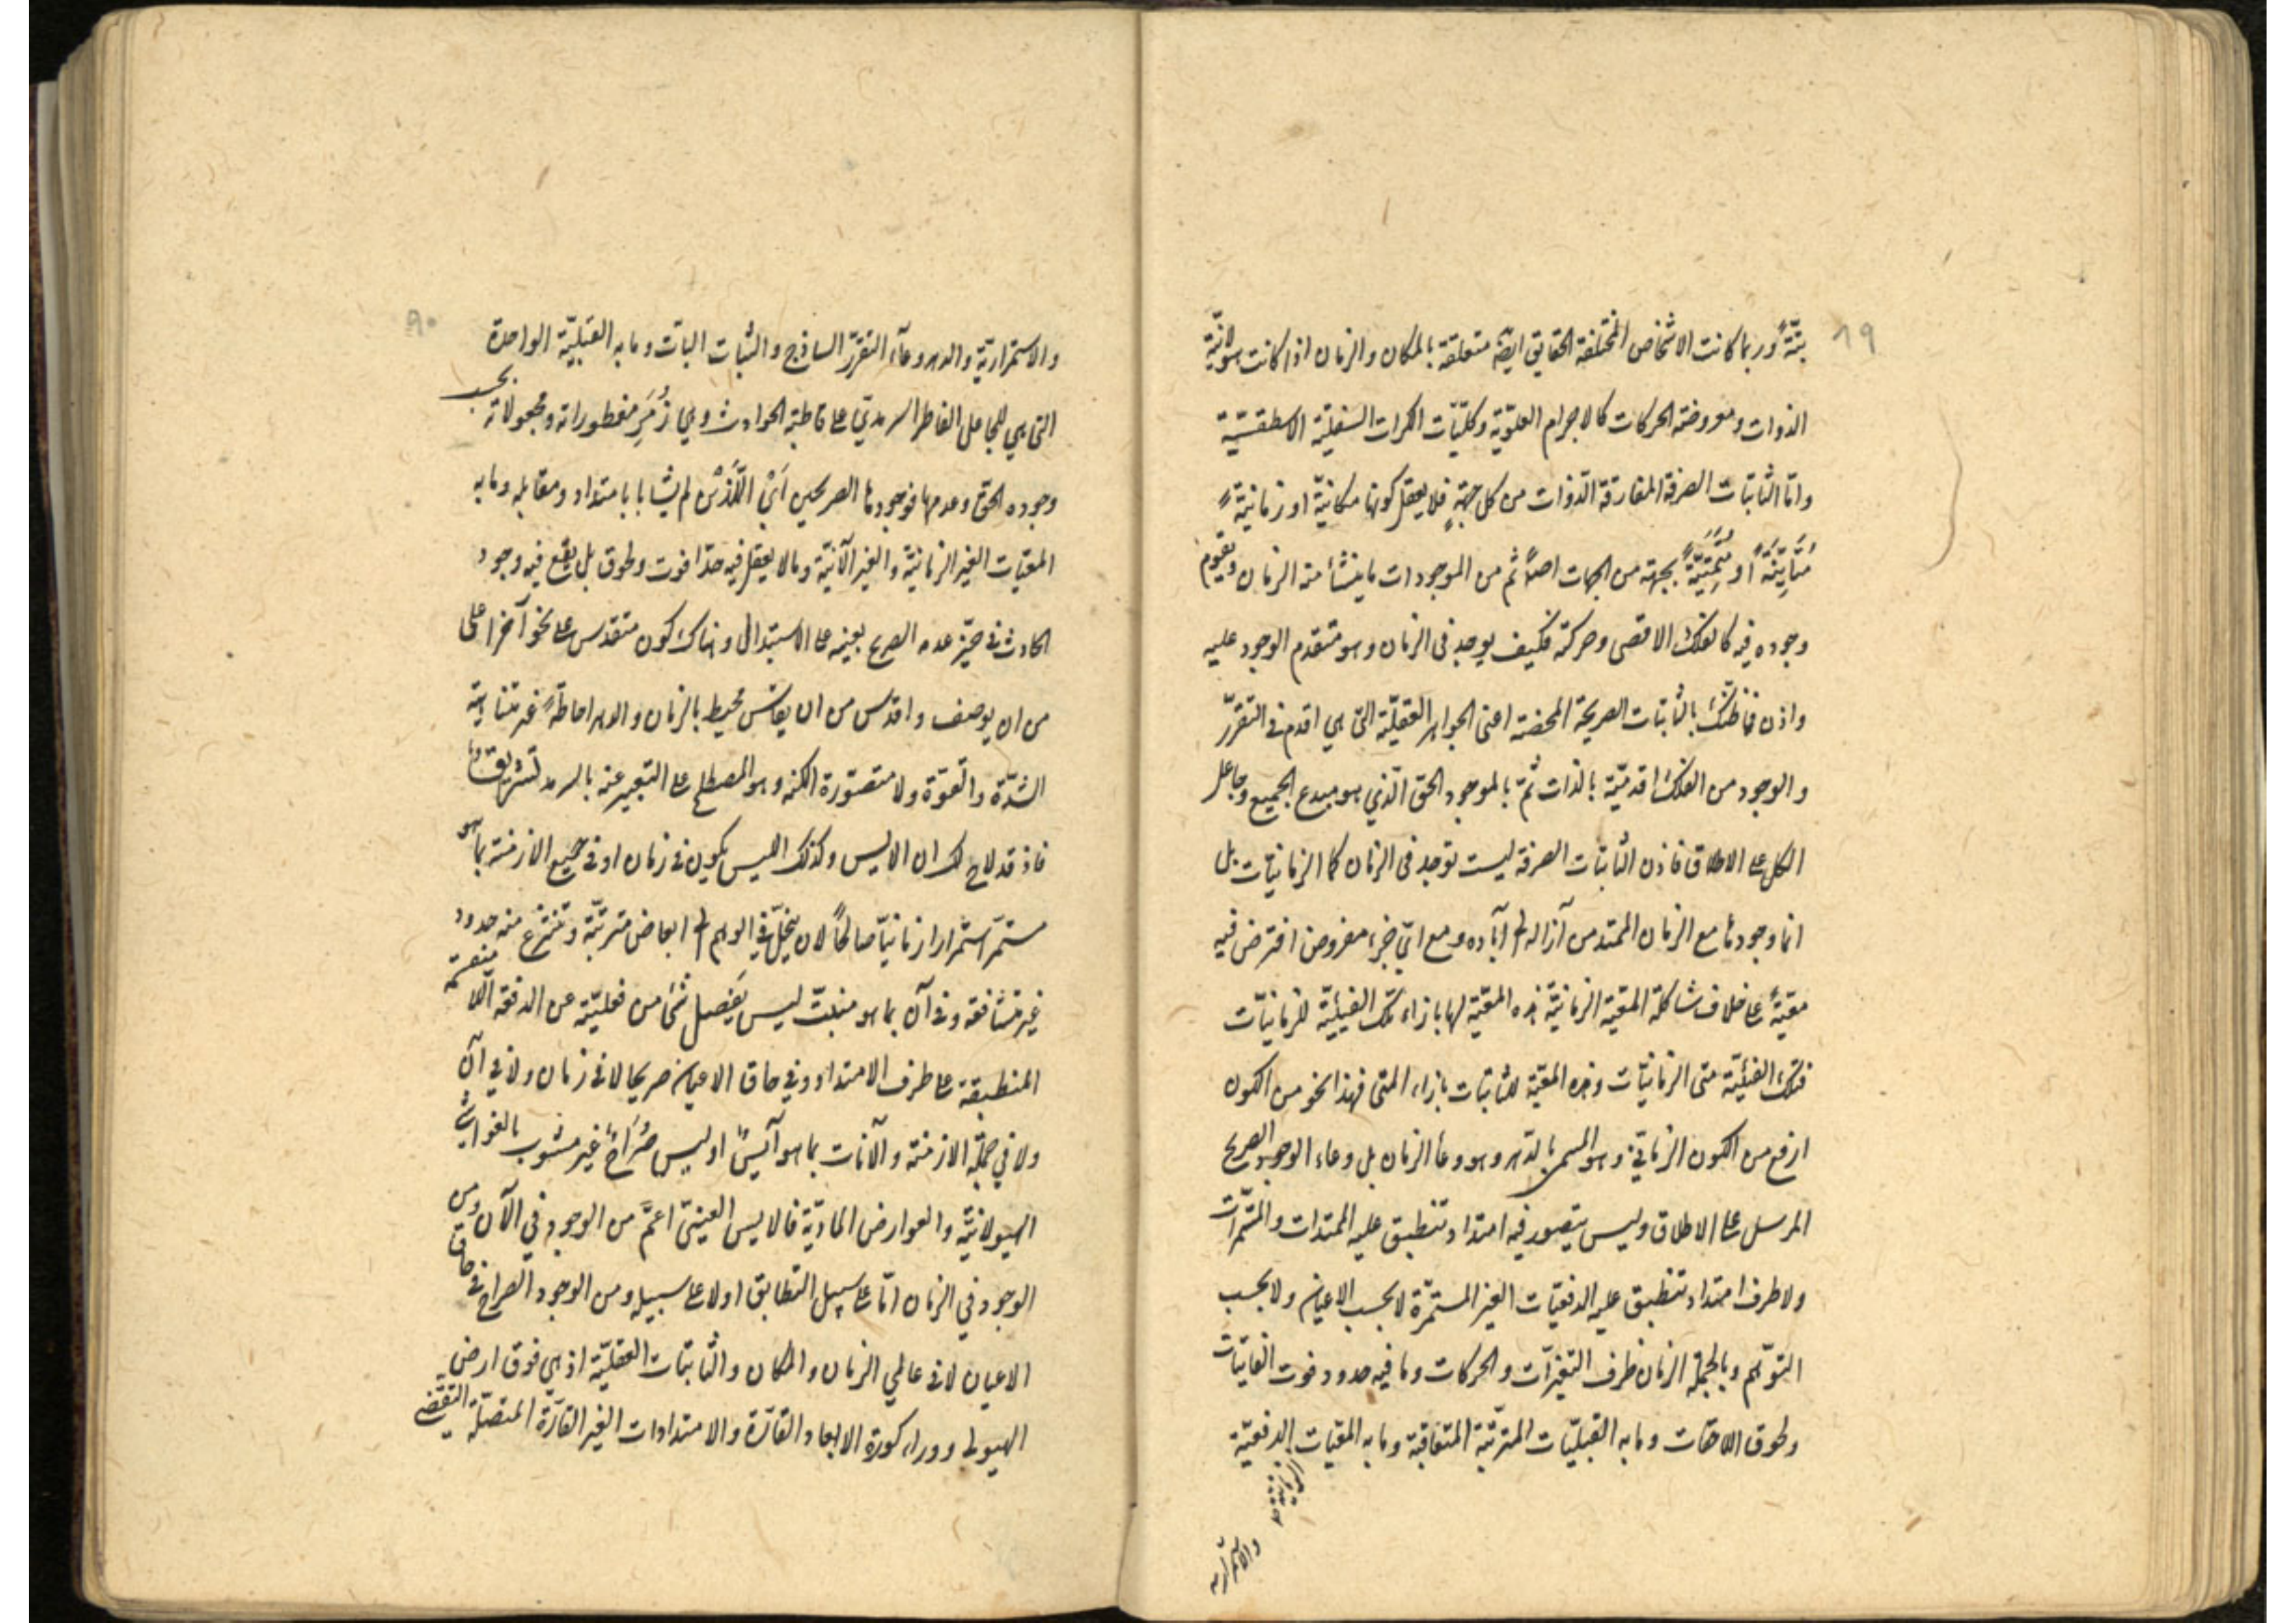 ١٩
بتّةً وربما كانت الاشخاص المختلفة الحقايق ايضا متعلقة بالمكان والزمان اذا كانت هيولانيّة
الذوات ومعروضة الحركات كالاجرام العلويّة وكليّات الكرات السفليّة الاسطقسيّة
وامّا الثابتات الصرفة المفارقة الذوات من كل جهةٍ فلا يعقل كونها مكانيّة او زمانيّةً
مُتَأَيِّنَةً او مُتَمَتِّيَةً بجهة من الجهات اصلاً ثم من الموجودات ما ينشأ منه الزمان ويقوم
وجوده فيه كالفلك الاقصى وحركته فكيف يوجد فى الزمان وهو متقدم الوجود عليه
واذن فما ظنّك بالثابتات الصريحة المحضة اعنى الجواهر العقليّة التى هي اقدم فى التقرّر
والوجود من الفلك اقدميّة بالذات ثمّ بالموجود الحق الّذي هو مبدع الجميع وجاعل
الكل على الاطلاق فاذن الثابتات الصرفة ليست توجد فى الزمان كما الزمانيّات بل
انما وجودها مع الزمان الممتد من آزاله الى آباده ومع اىّ جزء مفروض افترض فيه
معيّةً على خلاف شاكلة المعيّة الزمانيّة هذه المعيّة لها بازاء تلك الفيئيّة للزمانيّات
فتلك الفيئيّة متى الزمانيّات وهذه المعيّة للثابتات بازاء المتى فهذا نحو من الكون
ارفع من الكون الزمانيّ وهو المسمى بالدّهر وهو وعاء الزمان بل وعاء الوجود الصريح
المرسل على الاطلاق وليس يتصور فيه امتداد تنطبق عليه الممتدات والمستمرّات
ولا طرف امتداد تنطبق عليه الدفعيّات الغير المستمرّة لا بحسب الاعيان ولا بحسب
التوهّم وبالجملة الزمان ظرف التغيّرات والحركات وما فيه حدود فوت الفايتات
ولحوق اللاحقات وما به القبليّات المترتّبة المتعاقبة وما به المعيّات الدفعيّة
والاستمراريّة
٩٠
والاستمراريّة والدهر وعآء التقرّر الساذج والثبات الباتّ وما به القبليّة الواحدة
التى هي للجاعل الفاطر السرمدىّ على قاطبة الحوادث وهي زُمَرِ مفطوراته ومجعولاته بحسب
وجوده الحق وعدمها فوجودها الصريحين اَىْ اللَّذَيْن لم يشابا بامتداد ومقابله وما به
المعيّات الغير الزمانيّة والغير الآنيّة وما لا يعقل فيه حدّا فوت ولحوق بل يقع فيه وجود
الحادث فى حيّز عدمه الصريح بعينه على الاستبدال وهناك كون متقدس على نحو آخر اعلى
من ان يوصف واقدس من ان يقاس محيط بالزمان والدهر احاطةً غير متناهية
الشدّة والقوّة ولا متصوّرة الكنه وهو المصطلح على التعبير عنه بالسرمد تشريق ما
فاذ قد لاح لك ان الايس وكذلك الليس يكون فى زمان او فى جميع الازمنة بما هو
مستمرّ استمرارا زمانيّا صالحاً لان يتحلّل فى الوهم الى ابعاض مترتّبة وتنتزع منه حدود
غير متشافعة وفى آن بما هو منبتّ ليس يفصل شئ من فعليّته عن الدفعة اللا منقسمة
المنطبقة على طرف الامتداد وفى حاق الاعيان صريحا لا فى زمان ولا في آن
ولا في جملة الازمنة والآنات بما هو آيسٌ او ليس صُرَاحٌ غير مشوب بالغواشى
الهيولانيّة والعوارض الماديّة فالايس العينىّ اعمّ من الوجود في الآن ومن
الوجود في الزمان امّا على سبيل التطابق او لا على سبيله ومن الوجود الصراح فى حاق
الاعيان لا فى عالمي الزمان والمكان والثابتات العقليّة اذ هى فوق ارض
الهيولى ووراء كورة الابعاد القارّة والامتدادات الغير القارّة المتصلّة التقضّى